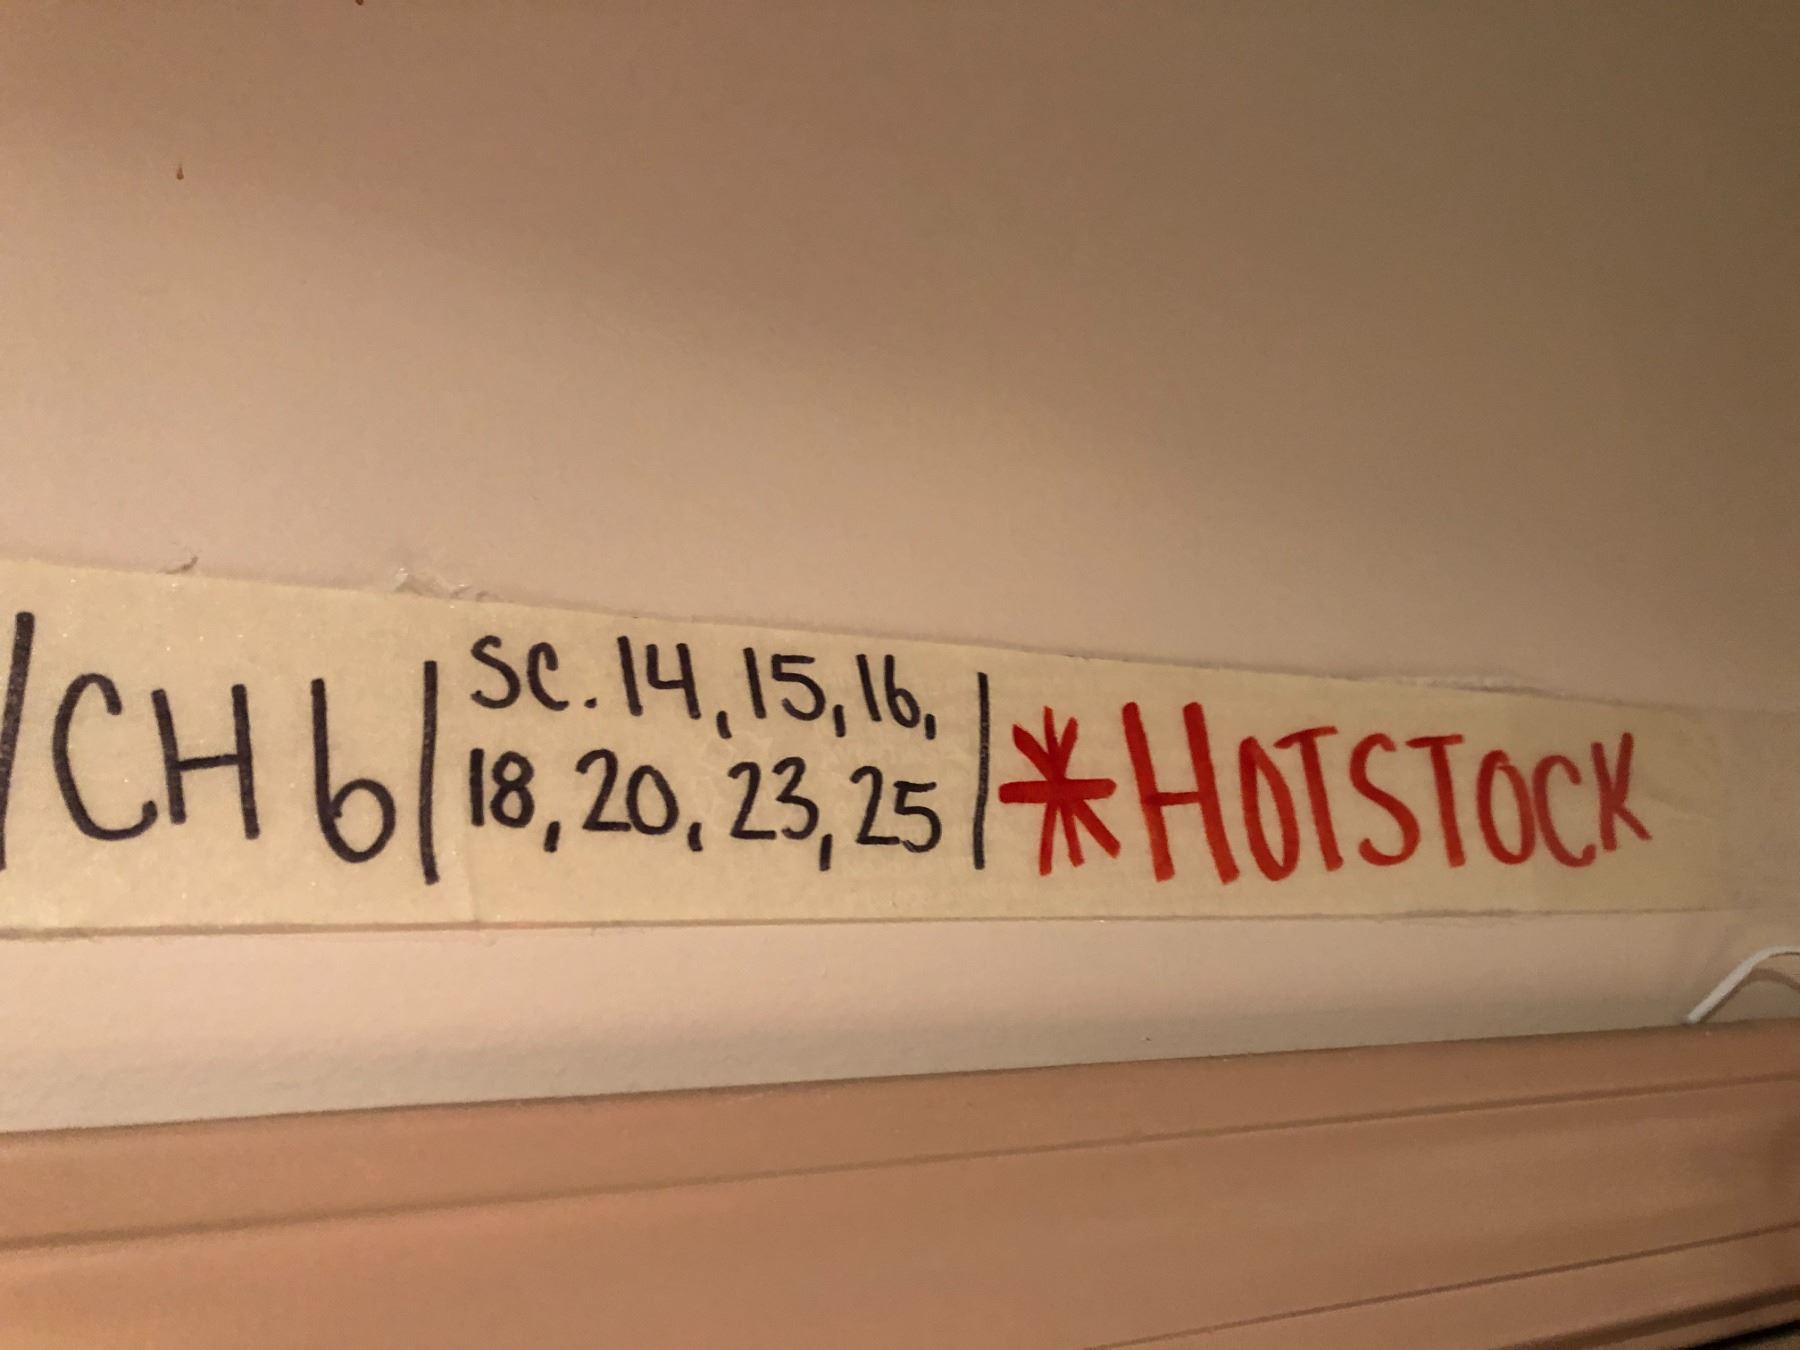 /CH 6| SC. 14, 15, 16, |*HOTSTOCK
18, 20, 23, 25